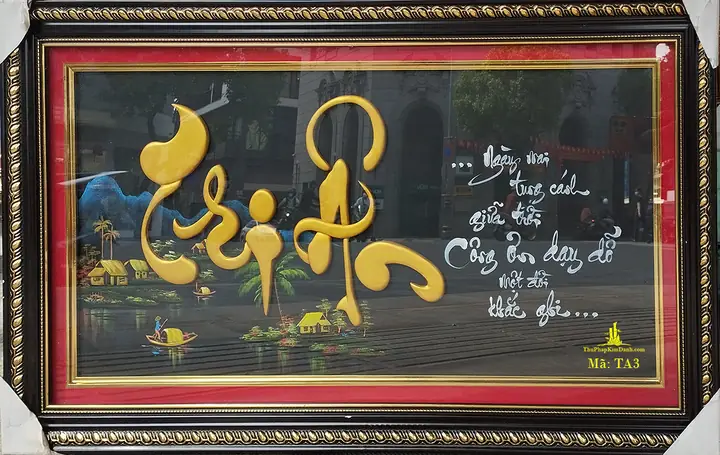 Tri Ân
... Ngày mai
tung cánh
giữa trời
Công ơn dạy dỗ
một đời
khắc ghi ...
ThuPhapKimDanh.com
Mã: TA3